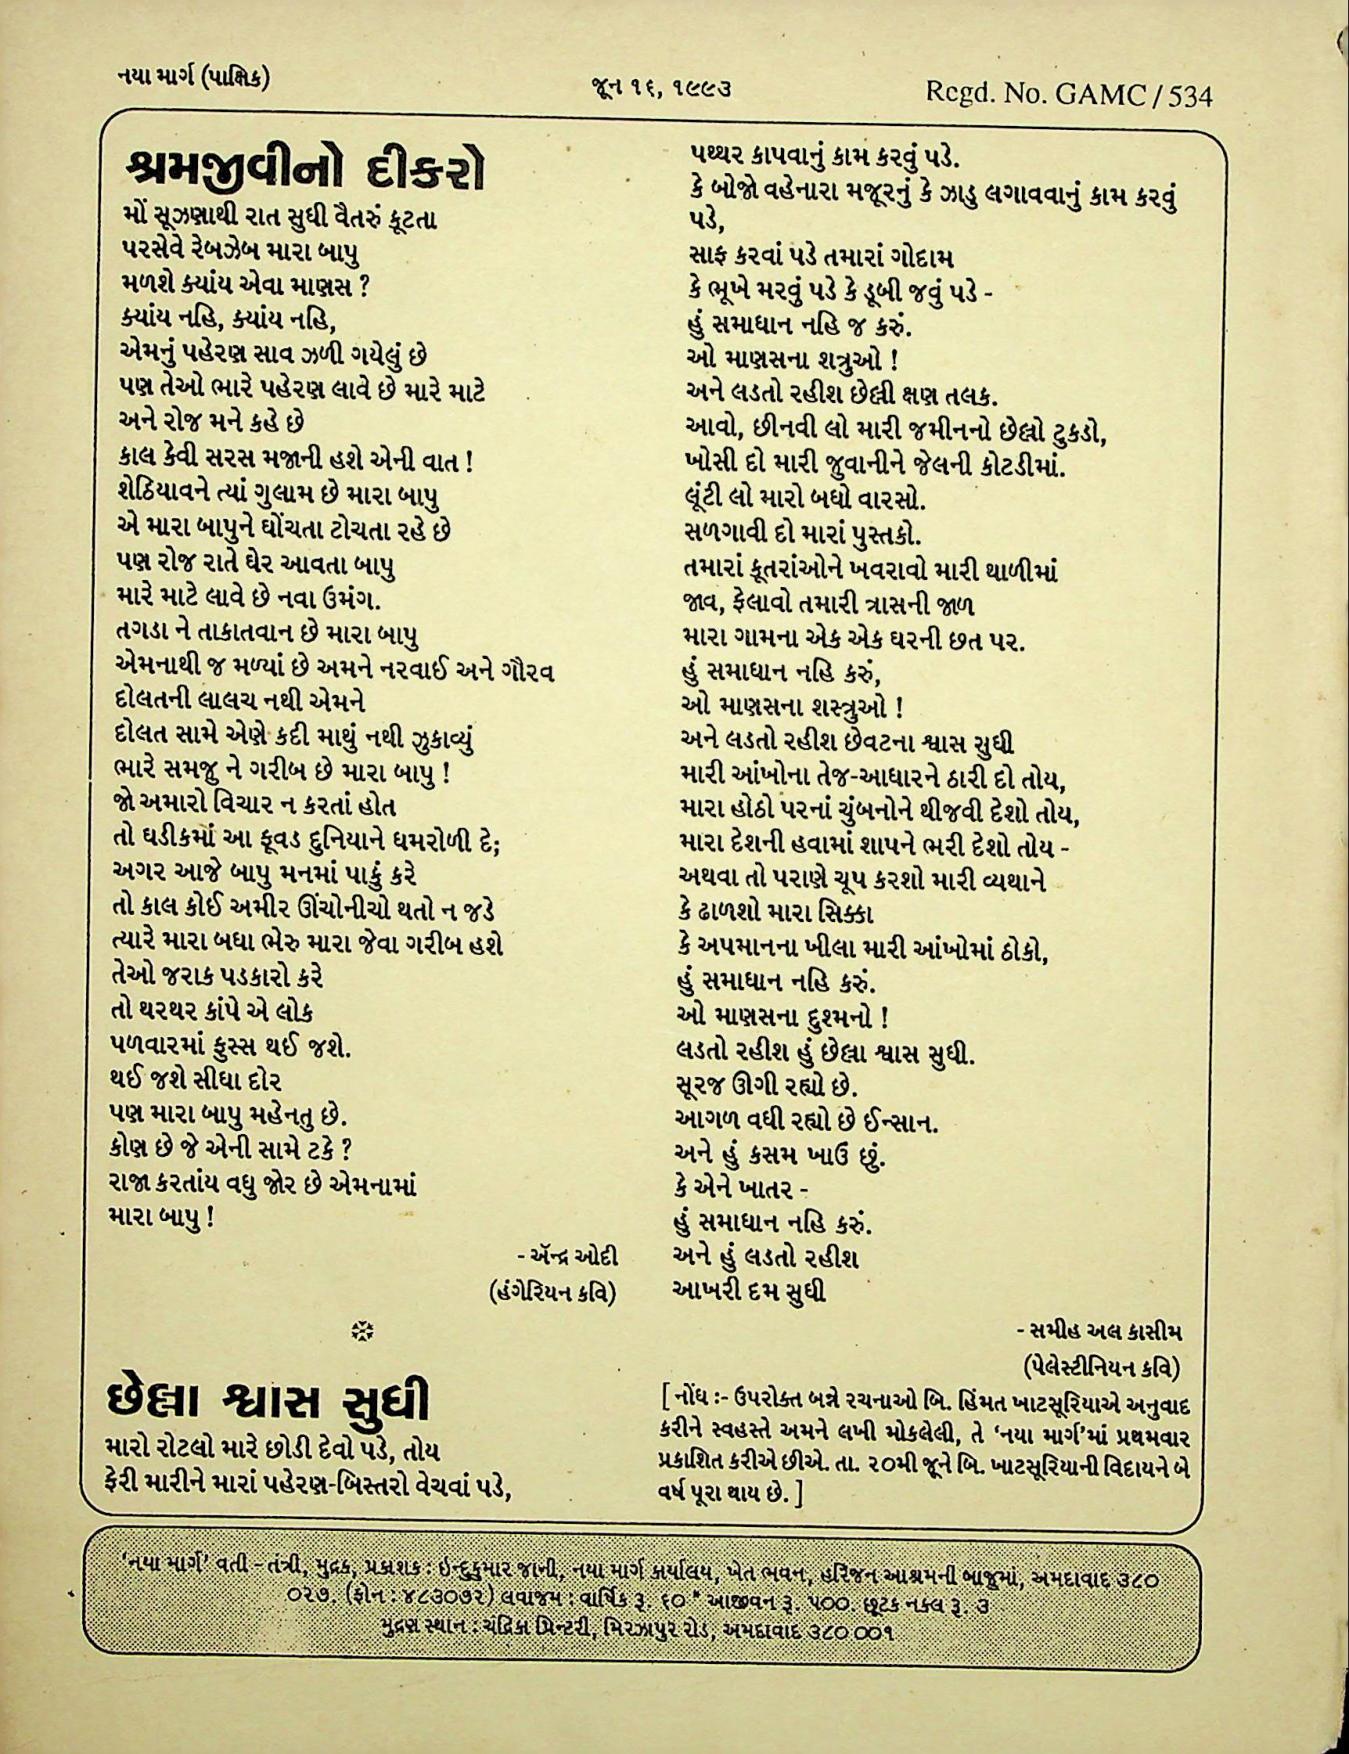 નયા માર્ગ (પાક્ષિક)
જૂન ૧૬, ૧૯૯૩
Regd. No. GAMC / 534
શ્રમજીવીનો દીકરો
મોં સૂઝણાથી રાત સુધી વૈતરું કૂટતા
પરસેવે રેબઝેબ મારા બાપુ
મળશે ક્યાંય એવા માણસ ?
ક્યાંય નહિ, ક્યાંય નહિ,
એમનું પહેરણ સાવ ઝળી ગયેલું છે
પણ તેઓ ભારે પહેરણ લાવે છે મારે માટે
અને રોજ મને કહે છે
કાલ કેવી સરસ મજાની હશે એની વાત !
શેઠિયાવને ત્યાં ગુલામ છે મારા બાપુ
એ મારા બાપુને ઘોંચતા ટોચતા રહે છે
પણ રોજ રાતે ઘેર આવતા બાપુ
મારે માટે લાવે છે નવા ઉમંગ.
તગડા ને તાકાતવાન છે મારા બાપુ
એમનાથી જ મળ્યાં છે અમને નરવાઈ અને ગૌરવ
દોલતની લાલચ નથી એમને
દોલત સામે એણે કદી માથું નથી ઝુકાવ્યું
ભારે સમજુ ને ગરીબ છે મારા બાપુ !
જો અમારો વિચાર ન કરતાં હોત
તો ઘડીકમાં આ ફૂવડ દુનિયાને ધમરોળી દે;
અગર આજે બાપુ મનમાં પાકું કરે
તો કાલ કોઈ અમીર ઊંચોનીચો થતો ન જડે
ત્યારે મારા બધા ભેરુ મારા જેવા ગરીબ હશે
તેઓ જરાક પડકારો કરે
તો થરથર કાંપે એ લોક
પળવારમાં ફુસ્સ થઈ જશે.
થઈ જશે સીધા દોર
પણ મારા બાપુ મહેનતુ છે.
કોણ છે જે એની સામે ટકે ?
રાજા કરતાંય વધુ જોર છે એમનામાં
મારા બાપુ !
- ઍન્દ્ર ઓદી
(હંગેરિયન કવિ)
છેલ્લા શ્વાસ સુધી
મારો રોટલો મારે છોડી દેવો પડે, તોય
ફેરી મારીને મારાં પહેરણ-બિસ્તરો વેચવાં પડે,
પથ્થર કાપવાનું કામ કરવું પડે.
કે બોજો વહેનારા મજૂરનું કે ઝાડુ લગાવવાનું કામ કરવું
પડે,
સાફ કરવાં પડે તમારાં ગોદામ
કે ભૂખે મરવું પડે કે ડૂબી જવું પડે -
હું સમાધાન નહિ જ કરું.
ઓ માણસના શત્રુઓ !
અને લડતો રહીશ છેલ્લી ક્ષણ તલક.
આવો, છીનવી લો મારી જમીનનો છેલ્લો ટુકડો,
ખોસી દો મારી જુવાનીને જેલની કોટડીમાં.
લૂંટી લો મારો બધો વારસો.
સળગાવી દો મારાં પુસ્તકો.
તમારાં કૂતરાંઓને ખવરાવો મારી થાળીમાં
જાવ, ફેલાવો તમારી ત્રાસની જાળ
મારા ગામના એક એક ઘરની છત પર.
હું સમાધાન નહિ કરું,
ઓ માણસના શસ્ત્રુઓ !
અને લડતો રહીશ છેવટના શ્વાસ સુધી
મારી આંખોના તેજ-આધારને ઠારી દો તોય,
મારા હોઠો પરનાં ચુંબનોને થીજવી દેશો તોય,
મારા દેશની હવામાં શાપને ભરી દેશો તોય -
અથવા તો પરાણે ચૂપ કરશો મારી વ્યથાને
કે ઢાળશો મારા સિક્કા
કે અપમાનના ખીલા મારી આંખોમાં ઠોકો,
હું સમાધાન નહિ કરું.
ઓ માણસના દુશ્મનો !
લડતો રહીશ હું છેલ્લા શ્વાસ સુધી.
સૂરજ ઊગી રહ્યો છે.
આગળ વધી રહ્યો છે ઈન્સાન.
અને હું કસમ ખાઉ છું.
કે એને ખાતર -
હું સમાધાન નહિ કરું.
અને હું લડતો રહીશ
આખરી દમ સુધી
- સમીહ અલ કાસીમ
(પેલેસ્ટીનિયન કવિ)
[ નોંધ :- ઉપરોક્ત બન્ને રચનાઓ બિ. હિંમત ખાટસૂરિયાએ અનુવાદ
કરીને સ્વહસ્તે અમને લખી મોકલેલી, તે ‘નયા માર્ગ’માં પ્રથમવાર
પ્રકાશિત કરીએ છીએ. તા. ૨૦મી જૂને બિ. ખાટસૂરિયાની વિદાયને બે
વર્ષ પૂરા થાય છે. ]
‘નયા માર્ગ’ વતી - તંત્રી, મુદ્રક, પ્રકાશક : ઇન્દુકુમાર જાની, નયા માર્ગ કાર્યાલય, ખેત ભવન, હરિજન આશ્રમની બાજુમાં, અમદાવાદ ૩૮૦
૦૨૭. (ફોન : ૪૮૩૦૭૨) લવાજમ : વાર્ષિક રૂ. ૬૦ * આજીવન રૂ. ૫૦૦. છૂટક નકલ રૂ. ૩
મુદ્રણ સ્થાન : ચંદ્રિકા પ્રિન્ટરી, મિરઝાપુર રોડ, અમદાવાદ ૩૮૦ ૦૦૧